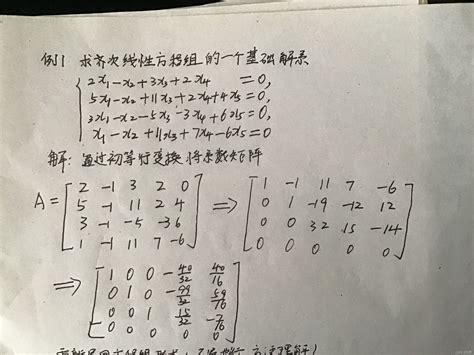 例1 求齐次线性方程组的一个基础解系
2x₁-x₂+3x₃+2x₄ =0,
5x₁-x₂+11x₃+2x₄+4x₅=0,
3x₁-x₂-5x₃-3x₄+6x₅=0,
x₁-x₂+11x₃+7x₄-6x₅=0
解: 通过初等行变换将系数矩阵
A= [ 2 -1 3 2 0 ] ⇒ [ 1 -1 11 7 -6 ]
[ 5 -1 11 2 4 ] [ 0 1 -19 -12 12 ]
[ 3 -1 -5 -3 6 ] [ 0 0 32 15 -14 ]
[ 1 -1 11 7 -6 ] [ 0 0 0 0 0 ]
⇒ [ 1 0 0 -40/32 40/16 ]
[ 0 1 0 -99/32 59/16 ]
[ 0 0 1 15/32 -7/16 ]
[ 0 0 0 0 0 ]